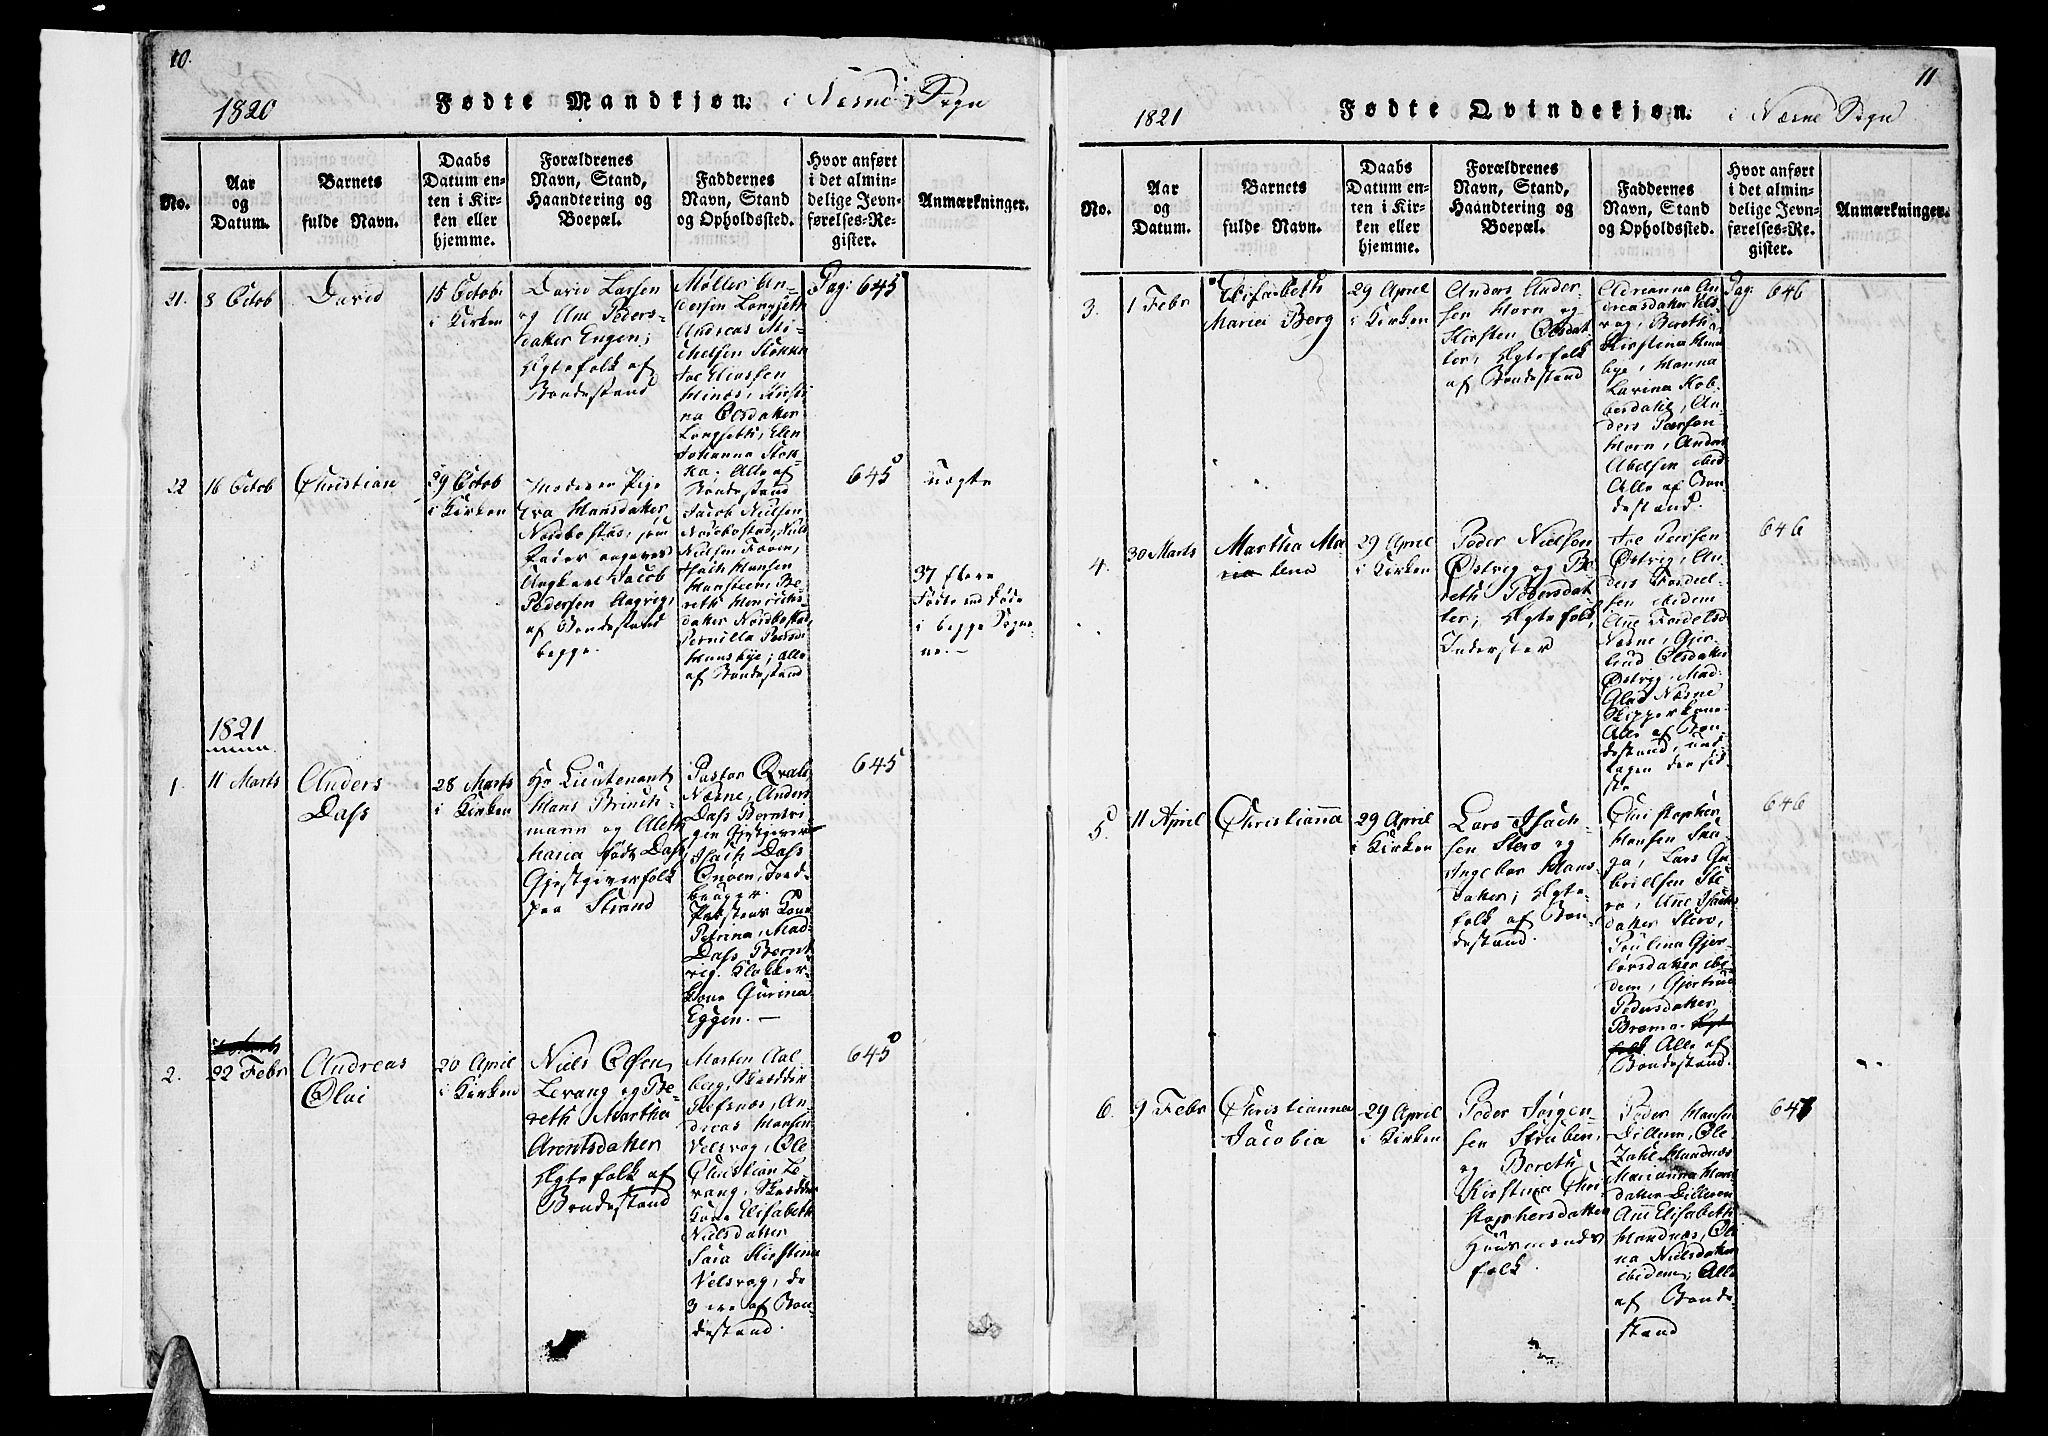 10.
1820
Fødte Mandkjøn. i Næsne Sogn
No.
Aar
og
Datum.
Barnets
fulde Navn.
Daabs
Datum en-
ten i Kir-
ken eller
hjemme.
Forældrenes
Navn, Stand,
Haandtering og
Boepæl.
Faddernes
Navn, Stand
og Opholdssted.
Hvor anført
i det almin-
delige Jevn-
førelses-Re-
gister.
Anmærkninger.
21.
8 Octob
David
15 Octob:
i Kirken
David Larsen
og Ane Peders-
datter Engen;
Ægtefolk af
Bondestand
Møller An-
dersen Longseth
Andreas Mi-
chelsen Stokka
Joe Eliassen
Hinæs, Kirsti-
na Olsdatter
Longseth, Elen
Johanna Stok-
ka; Alle af
Bondestand
Pag: 645
22
16 Octob
Christian
29 Octob
i Kirken
Moderen Pige
Eva Hansdatter
Nordbostad, som
Fader angives
Ungkarl Jacob
Pedersen
af Bondestand
begge.
Jacob Nielsen
Nordbostad, Niels
Nielsen
Isach Hansen
Hansteen, Be-
reth Henrichs-
datter Nordbostad
Pernilla Pedersd
Hansbye; alle
af Bondestand
645
uægte
37 flere
Fødte end Døde
i begge Sogne-
ne.—
1821
1.
11 Marts
Anders
Dass
28 Marts
i Kirken
Hr Lieutenant
Hans Brinch-
mann og Aleth
Maria født Dass
Gjestgiverfolk
paa Strand
Pastor Qvale
Næsne, Anders
Dass Bernsvi-
gen Gjestgiver
Isach Dass
bruger.
Pastors Kone
Petrina, Mad:
Dass Bernt-
vig. Klokker-
Kone Gurina
Eggen.—
645
2.
22 Febr
Andreas
Olai
20 April
i Kirken
Niels Olsen
Levang og Be-
reth Martha
Arentsdatter
Ægtefolk af
Bondestand
Morten Aal-
berg, Skrædder
An-
dreas Hansen
Velsvog, Ole
Christian Le-
vang, Skrædder
Kone Elisabeth
Nielsdatter
Sara Kirstina
Velsvog, de
3 re af Bon-
destand.
645
11
1821
Fødte Qvindekjøn. i Næsne Sogn
No.
Aar
og
Datum.
Barnets
fulde Navn.
Daabs
Datum en-
ten i Kir-
ken eller
hjemme.
Forældrenes
Navn, Stand,
Haandtering og
Boepæl.
Faddernes
Navn, Stand
og Opholdssted.
Hvor anført
i det almin-
delige Jevn-
førelses-Re-
gister.
Anmærkninger.
3.
1 Febr
Elisabeth
Maria Berg
29 April
i Kirken
Anders Ander-
sen Horn og
Kirsten Olsdat-
ter, Ægtefolk
af Bondestand
Adrianna An-
dreasdatter Vels-
vog, Bereth
Kirstina Hans-
bye, Hanna
Lavina Kob-
bersdahl, An-
ders Pærsen
Horn, Anders
Abelsen ibid
Alle af Bon-
destand.
Pag: 646
4.
30 Marts
Martha Ma-
lena
29 April
i Kirken
Peder Nielsen
Østvig og Be-
reth Pedersdat-
ter; Ægtefolk,
Inderster
Joe Peersen
Østvig, An-
ders Fordeel-
sen ibidem
Ane Fordelsd
Næsne, Gjer-
trud Olsdatter
Østvig, Mad:
Næsne
Skipperkone
Alle af Bon-
destand, und-
tagen den sid-
ste
646
5.
11 April
Christianna
29 April
i Kirken
Lars Isach-
sen Stero og
Ingebor Hans-
datter; Ægte-
folk af Bon-
destand.
Christopher
Hansen Ska-
ga, Lars Ga-
brielsen Ste-
ro, Ane Isachs-
datter Stero,
Paulina Gjer-
løvsdatter ibi-
dem, Gjertrud
Pedersdatter
Bromo. Ægte-
folk Alle af
Bondestand.
646
6.
9 Febr
Christianna
Jacobia
29 April
i Kirken
Peder Jørgen-
sen Strüben,
og Bereth
Kirstina Chri-
stophersdatter
Huusmands
folk.
Peder Hansen
Dillern, Ole
Zahl Handnæs
Marianna Hans-
datter Dilleren
Ane Elisabeth
Handnæs, Ole-
na Nielsdatter
ibidem; Alle
af Bonde-
stand
647